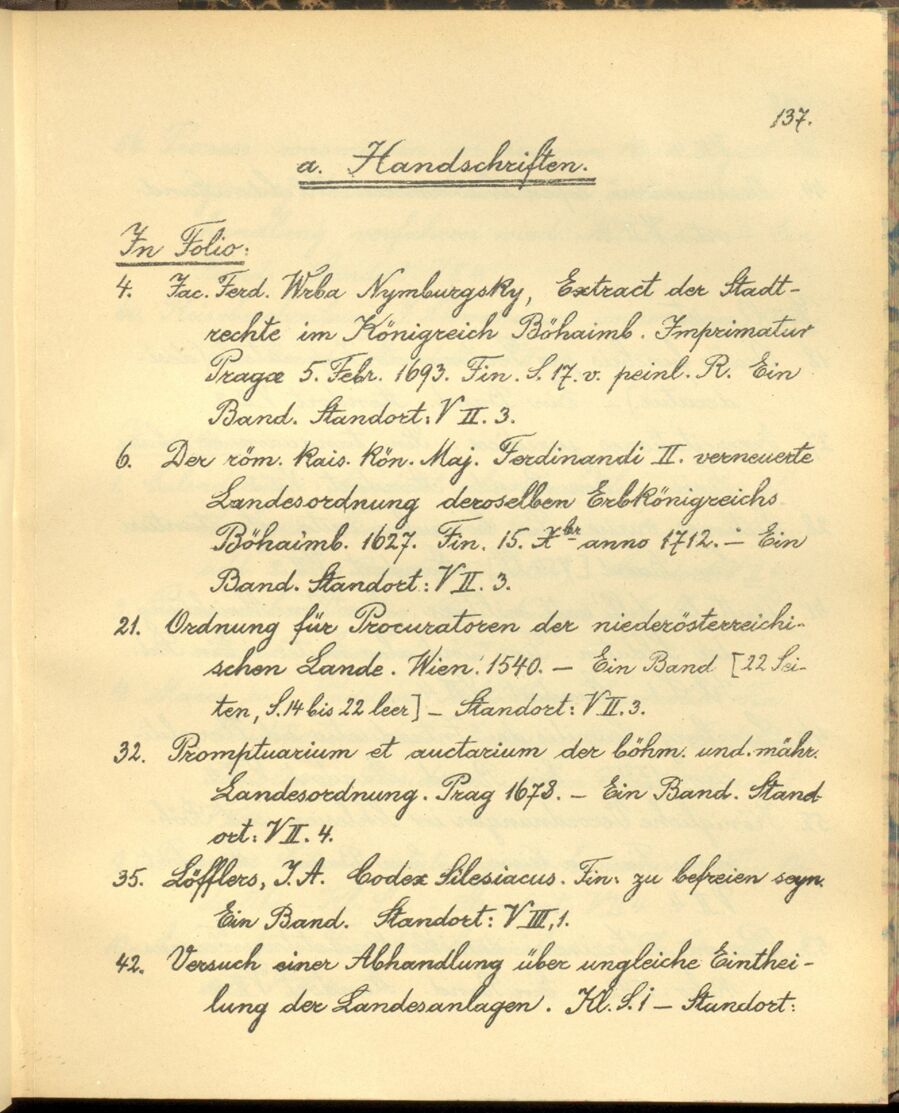 137.
a. Handschriften.
In Folio:
4. Jac. Ferd. Wrba Nymburgsky, Extract der Stadt-
rechte im Königreich Böhaimb. Imprimatur
Pragae 5. Febr. 1693. Fin. S. 17. v. peinl. R. Ein
Band. Standort: V II. 3.
6. Der röm. kais. kön. Maj. Ferdinandi II. verneuerte
Landesordnung deroselben Erbkönigreichs
Böhaimb. 1627. Fin. 15. Xbr anno 1712. – Ein
Band. Standort: V II. 3.
21. Ordnung für Procuratoren der niederösterreichi-
schen Lande. Wien. 1540. – Ein Band [22 Sei-
ten, S. 14 bis 22 leer] – Standort: V II. 3.
32. Promptuarium et auctarium der böhm. und. mähr.
Landesordnung. Prag 1673. – Ein Band. Stand
ort: V II. 4.
35. Löfflers, J. A. Codex Silesiacus. Fin: zu befreien seyn.
Ein Band. Standort: V III, 1.
42. Versuch einer Abhandlung über ungleiche Einthei-
lung der Landesanlagen. Kl. S. i – Standort: